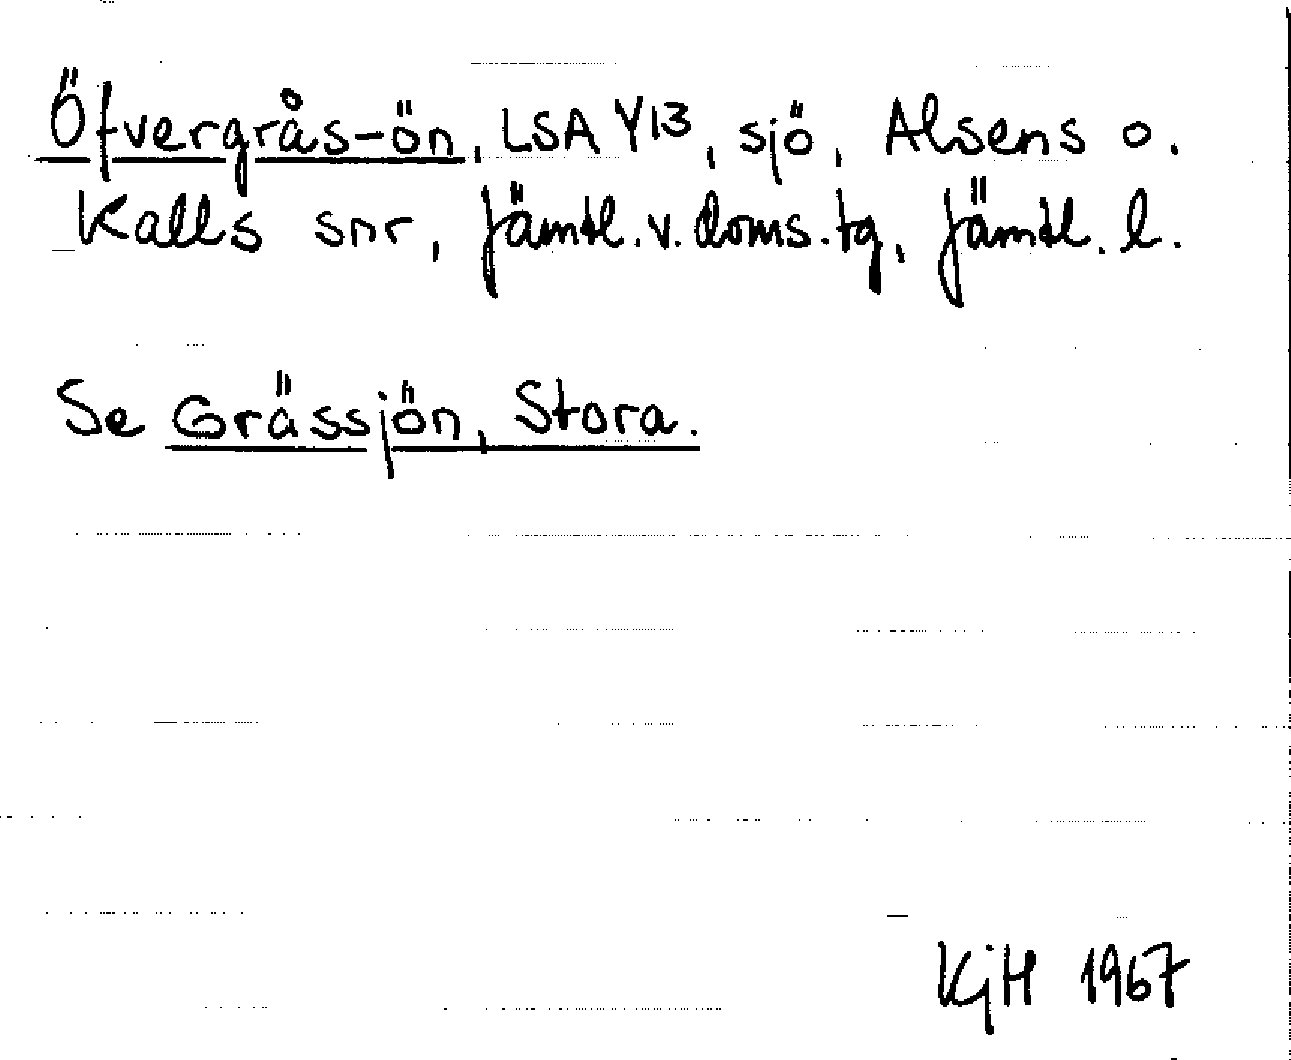 Öfvergrås-ön, LSA Y13, sjö, Alsens o.
Kalls snr, Jämtl. v. doms. tg, Jämtl. l.
Se Grässjön, Stora.
KjH 1967